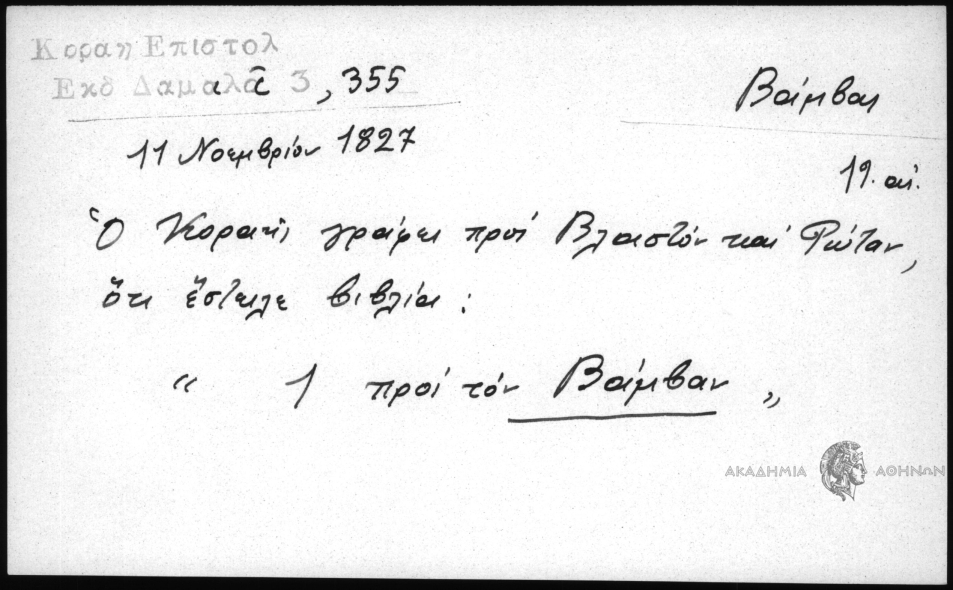 Κοραη Επιστολ
Εκδ Δαμαλα 3 α, 355
Βάμβας
11 Νοεμβρίου 1827
19. αἰ.
Ὁ Κοραῆς γράφει πρὸς Βλαστὸν καὶ Ρώταν,
ὅτι ἔστειλε βιβλία:
“ 1 πρὸς τὸν Βάμβαν „
ΑΚΑΔΗΜΙΑ ΑΘΗΝΩΝ